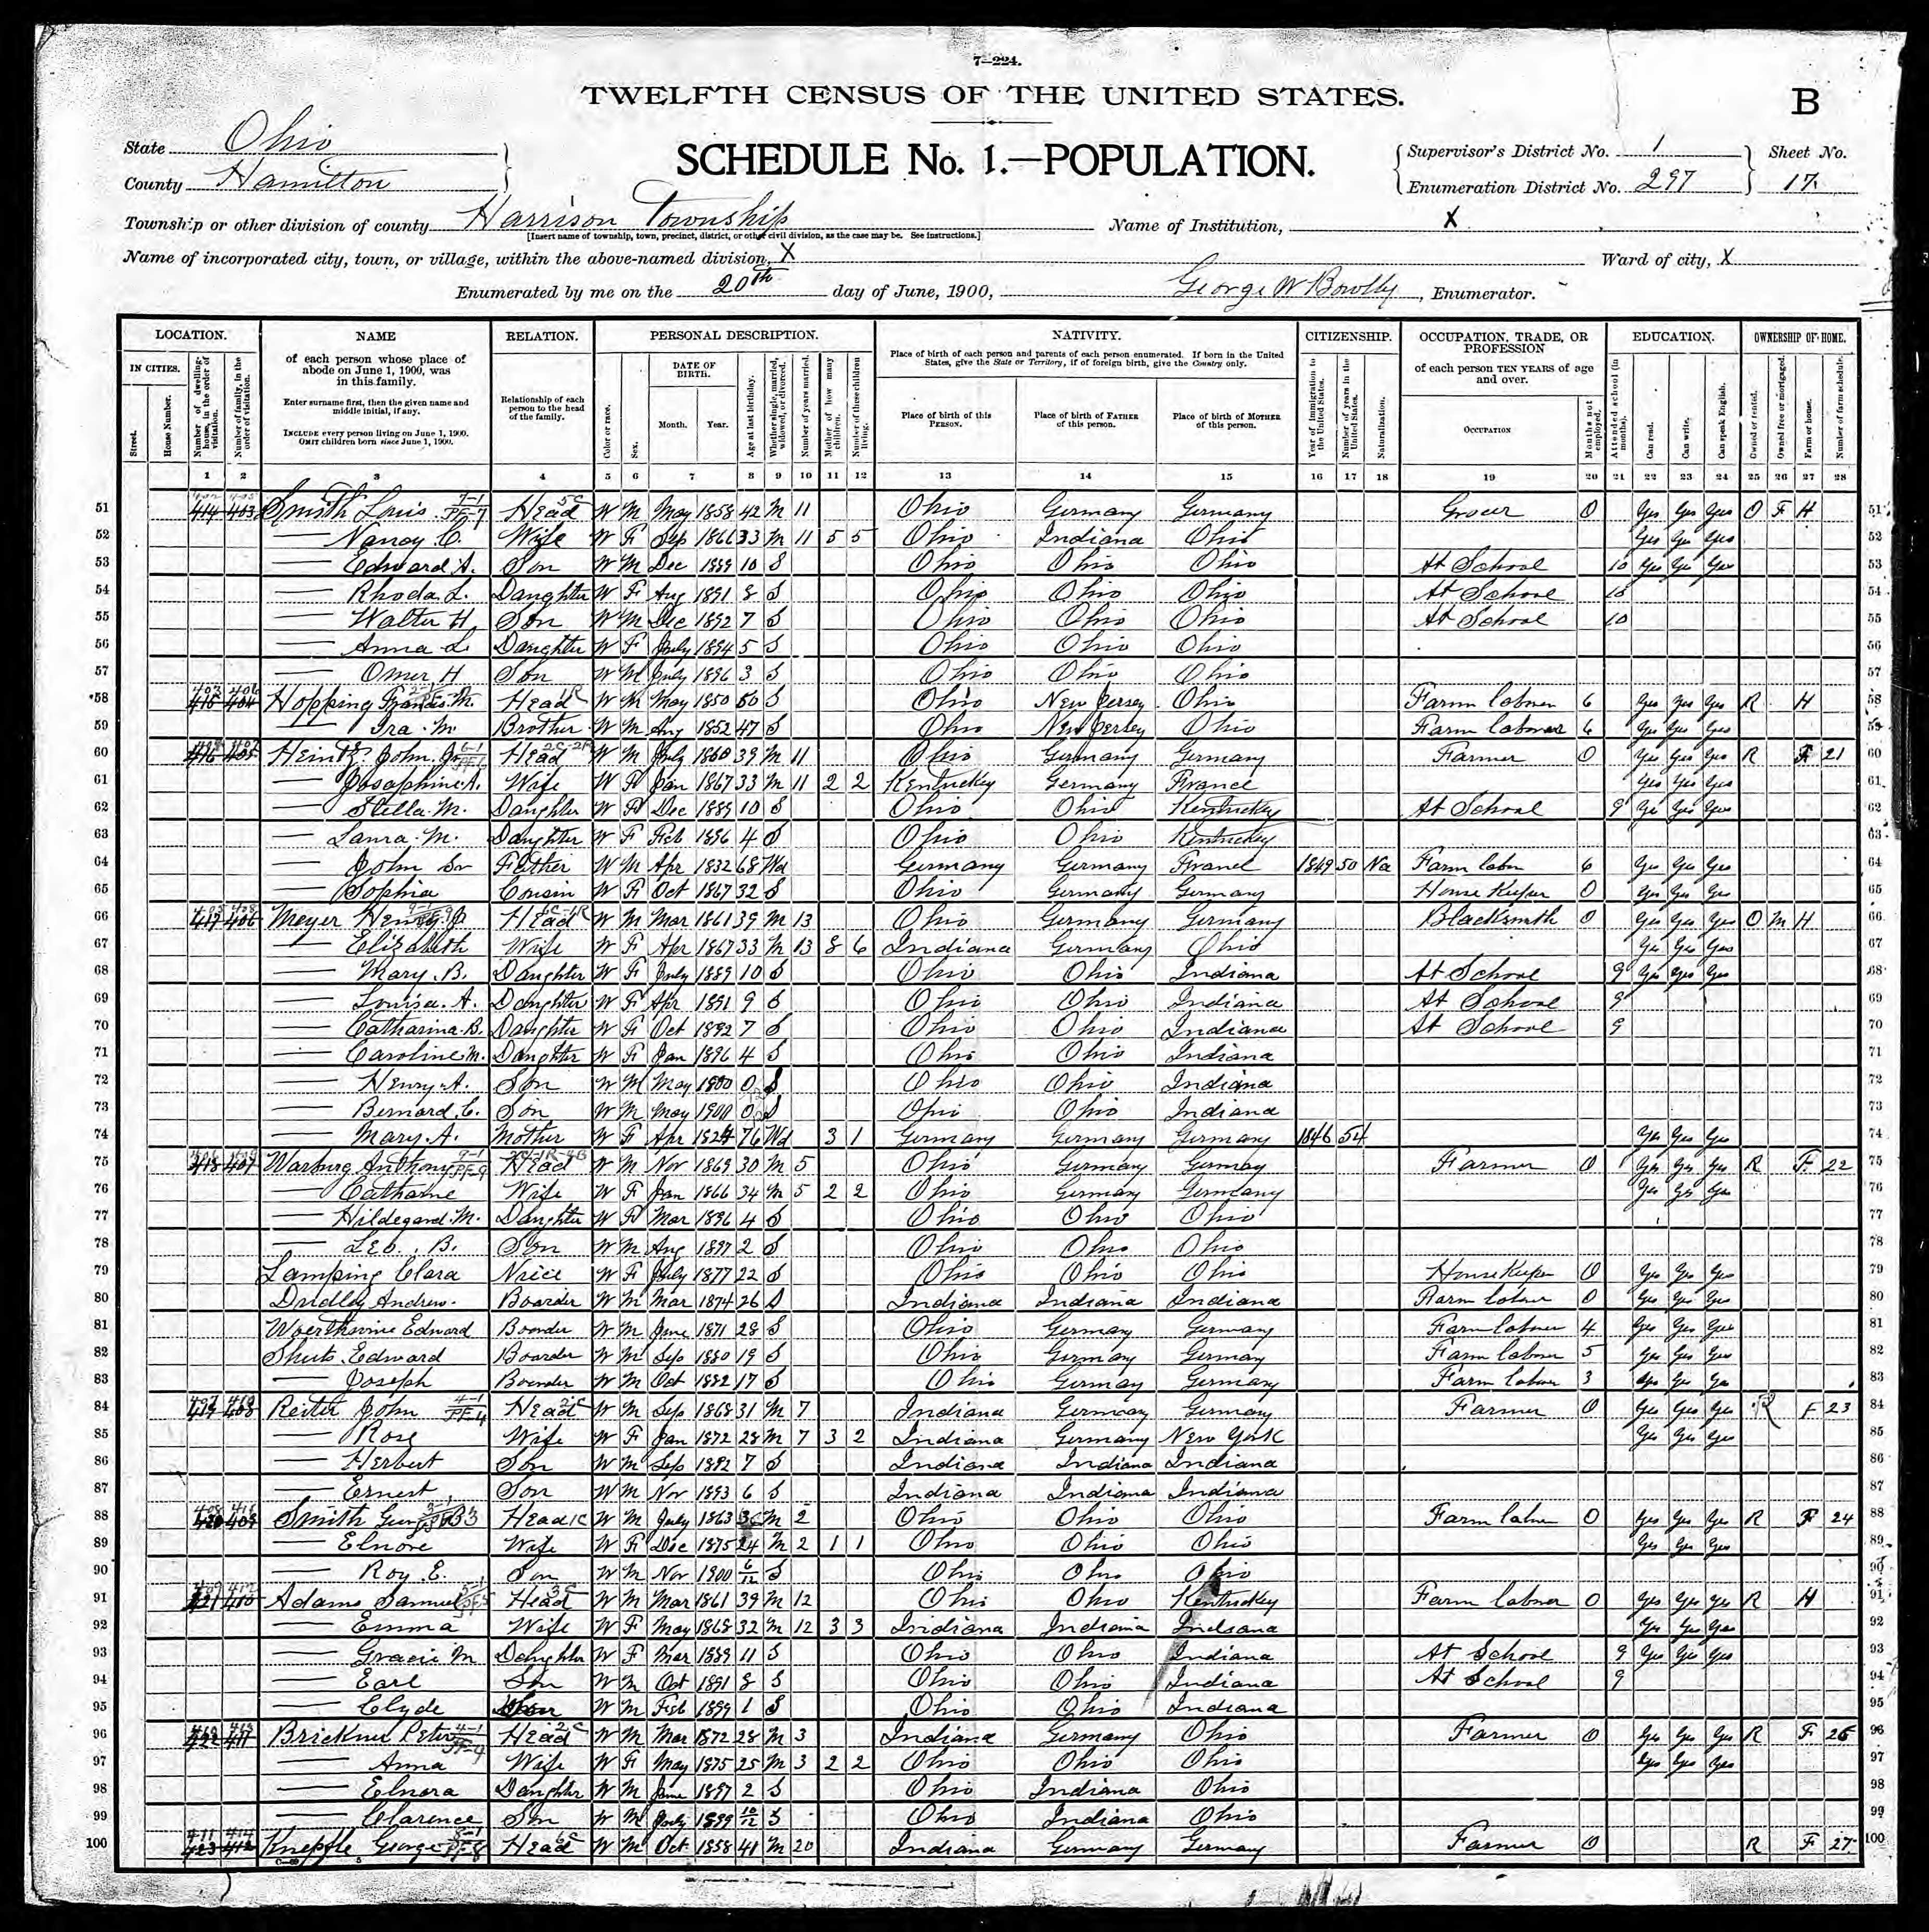 7—224.
TWELFTH CENSUS OF THE UNITED STATES.
B
State Ohio
County Hamilton
SCHEDULE No. 1.—POPULATION.
Supervisor's District No. 1
Enumeration District No. 297
Sheet No.
17.
Township or other division of county Harrison Township
[Insert name of township, town, precinct, district, or other civil division, as the case may be. See instructions.]
Name of Institution, X
Name of incorporated city, town, or village, within the above-named division, X
Ward of city, X
Enumerated by me on the 20th day of June, 1900, George W Bowlby, Enumerator.
LOCATION. NAME RELATION. PERSONAL DESCRIPTION. NATIVITY. CITIZENSHIP. OCCUPATION, TRADE, OR PROFESSION EDUCATION. OWNERSHIP OF HOME.
IN CITIES.
Street.
House Number.
Number of dwelling-house, in the order of visitation.
Number of family, in the order of visitation.
of each person whose place of abode on June 1, 1900, was in this family.
Enter surname first, then the given name and middle initial, if any.
INCLUDE every person living on June 1, 1900.
OMIT children born since June 1, 1900.
Relationship of each person to the head of the family.
Color or race.
Sex.
DATE OF BIRTH.
Month. Year.
Age at last birthday.
Whether single, married, widowed, or divorced.
Number of years married.
Mother of how many children.
Number of these children living.
Place of birth of each person and parents of each person enumerated. If born in the United States, give the State or Territory; if of foreign birth, give the Country only.
Place of birth of this PERSON.
Place of birth of FATHER of this person.
Place of birth of MOTHER of this person.
Year of immigration to the United States.
Number of years in the United States.
Naturalization.
of each person TEN YEARS of age and over.
OCCUPATION
Months not employed.
Attended school (in months).
Can read.
Can write.
Can speak English.
Owned or rented.
Owned free or mortgaged.
Farm or house.
Number of farm schedule.
1 2 3 4 5 6 7 8 9 10 11 12 13 14 15 16 17 18 19 20 21 22 23 24 25 26 27 28
51 414 403 Smith Louis Head W M May 1858 42 M 11 Ohio Germany Germany Grocer 0 Yes Yes Yes O F H 51
52 — Nancy C. Wife W F Sep 1866 33 M 11 5 5 Ohio Indiana Ohio Yes Yes Yes 52
53 — Edward A. Son W M Dec 1889 10 S Ohio Ohio Ohio At School 10 Yes Yes Yes 53
54 — Rhoda L. Daughter W F Aug 1891 8 S Ohio Ohio Ohio At School 10 54
55 — Walter H. Son W M Dec 1892 7 S Ohio Ohio Ohio At School 10 55
56 — Anna L Daughter W F July 1894 5 S Ohio Ohio Ohio 56
57 — Omer H Son W M July 1896 3 S Ohio Ohio Ohio 57
58 415 404 Hopping Francis M. Head W M May 1850 50 S Ohio New Jersey Ohio Farm labour 6 Yes Yes Yes R H 58
59 — Ira M Brother W M Aug 1852 47 S Ohio New Jersey Ohio Farm laborer 6 Yes Yes Yes 59
60 416 405 Heintz John Jr Head W M July 1860 39 M 11 Ohio Germany Germany Farmer 0 Yes Yes Yes R F 21 60
61 — Josephine A. Wife W F Jan 1867 33 M 11 2 2 Kentucky Germany France Yes Yes Yes 61
62 — Stella M. Daughter W F Dec 1889 10 S Ohio Ohio Kentucky At School 9 Yes Yes Yes 62
63 — Laura M. Daughter W F Feb 1896 4 S Ohio Ohio Kentucky 63
64 — John Sr Father W M Apr 1832 68 Wd Germany Germany France 1849 50 Na Farm labor 6 Yes Yes Yes 64
65 — Sophia Cousin W F Oct 1867 32 S Ohio Germany Germany House Keeper 0 Yes Yes Yes 65
66 417 406 Meyer Henry J Head W M Mar 1861 39 M 13 Ohio Germany Germany Blacksmith 0 Yes Yes Yes O M H 66
67 — Elizabeth Wife W F Apr 1867 33 M 13 8 6 Indiana Germany Ohio Yes Yes Yes 67
68 — Mary B. Daughter W F July 1889 10 S Ohio Ohio Indiana At School 9 Yes Yes Yes 68
69 — Louisa A. Daughter W F Apr 1891 9 S Ohio Ohio Indiana At School 9 69
70 — Catharina B. Daughter W F Oct 1892 7 S Ohio Ohio Indiana At School 9 70
71 — Caroline M. Daughter W F Jan 1896 4 S Ohio Ohio Indiana 71
72 — Henry A. Son W M May 1900 0 S Ohio Ohio Indiana 72
73 — Bernard C. Son W M May 1900 0 S Ohio Ohio Indiana 73
74 — Mary A. Mother W F Apr 1824 76 Wd 3 1 Germany Germany Germany 1846 54 Yes Yes Yes 74
75 418 407 Warburg Anthony Head W M Nov 1869 30 M 5 Ohio Germany Germany Farmer 0 Yes Yes Yes R F 22 75
76 — Catharine Wife W F Jan 1866 34 M 5 2 2 Ohio Germany Germany Yes Yes Yes 76
77 — Hildegard M. Daughter W F Mar 1896 4 S Ohio Ohio Ohio 77
78 — Leo. B. Son W M Aug 1897 2 S Ohio Ohio Ohio 78
79 Lamping Clara Neice W F July 1877 22 S Ohio Ohio Ohio House Keeper 0 Yes Yes Yes 79
80 Dudley Andrew Boarder W M Mar 1874 26 S Indiana Indiana Indiana Farm labour 0 Yes Yes Yes 80
81 Edward Boarder W M June 1871 28 S Ohio Germany Germany Farm labour 4 Yes Yes Yes 81
82 Shuts Edward Boarder W M Sep 1880 19 S Ohio Germany Germany Farm labour 5 Yes Yes Yes 82
83 — Joseph Boarder W M Oct 1882 17 S Ohio Germany Germany Farm labour 3 Yes Yes Yes 83
84 419 408 Reiter John Head W M Sep 1868 31 M 7 Indiana Germany Germany Farmer 0 Yes Yes Yes R F 23 84
85 — Rose Wife W F Jan 1872 28 M 7 3 2 Indiana Germany New York Yes Yes Yes 85
86 — Herbert Son W M Sep 1892 7 S Indiana Indiana Indiana 86
87 — Ernest Son W M Nov 1893 6 S Indiana Indiana Indiana 87
88 420 409 Smith Head W M July 1863 36 M 2 Ohio Ohio Ohio Farm labor 0 Yes Yes Yes R F 24 88
89 — Elnore Wife W F Dec 1875 24 M 2 1 1 Ohio Ohio Ohio Yes Yes Yes 89
90 — Roy E. Son W M Nov 1900 6/12 S Ohio Ohio Ohio 90
91 421 410 Adams Samuel Head W M Mar 1861 39 M 12 Ohio Ohio Kentucky Farm labour 0 Yes Yes Yes R H 91
92 — Emma Wife W F May 1868 32 M 12 3 3 Indiana Indiana Indiana Yes Yes Yes 92
93 — Gracie M Daughter W F Mar 1889 11 S Ohio Ohio Indiana At School 9 Yes Yes Yes 93
94 — Earl Son W M Oct 1891 8 S Ohio Ohio Indiana At School 9 94
95 — Clyde Son W M Feb 1899 1 S Ohio Ohio Indiana 95
96 422 411 Brickner Peter Head W M Mar 1872 28 M 3 Indiana Germany Ohio Farmer 0 Yes Yes Yes R F 26 96
97 — Anna Wife W F May 1875 25 M 3 2 2 Ohio Ohio Ohio Yes Yes Yes 97
98 — Elnora Daughter W M June 1897 2 S Ohio Indiana Ohio 98
99 — Clarence Son W M July 1899 10/12 S Ohio Indiana Ohio 99
100 423 412 Knepfle George Head W M Oct 1858 41 M 20 Indiana Germany Germany Farmer 0 R F 27 100